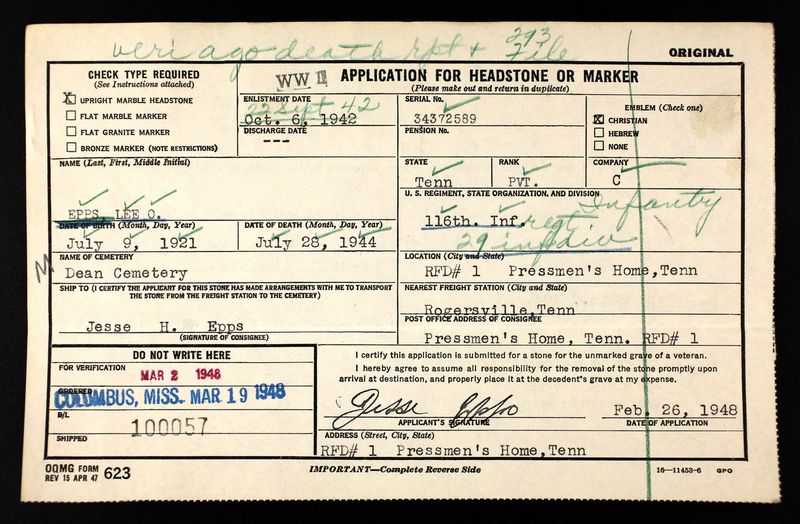 veri ago death rpt + 293 File
ORIGINAL
CHECK TYPE REQUIRED
(See Instructions attached)
X UPRIGHT MARBLE HEADSTONE
FLAT MARBLE MARKER
FLAT GRANITE MARKER
BRONZE MARKER (NOTE RESTRICTIONS)
WW II APPLICATION FOR HEADSTONE OR MARKER
(Please make out and return in duplicate)
ENLISTMENT DATE
22 Sept 42
Oct. 6, 1942
DISCHARGE DATE
---
SERIAL No.
34372589
PENSION No.
EMBLEM (Check one)
X CHRISTIAN
HEBREW
NONE
NAME (Last, First, Middle Initial)
EPPS, LEE O.
STATE
Tenn
RANK
PVT.
COMPANY
C
U. S. REGIMENT, STATE ORGANIZATION, AND DIVISION
116th. Inf. regt Infantry
29 inf div
DATE OF BIRTH (Month, Day, Year)
July 9, 1921
DATE OF DEATH (Month, Day, Year)
July 28, 1944
M
NAME OF CEMETERY
Dean Cemetery
LOCATION (City and State)
RFD# 1 Pressmen's Home,Tenn
SHIP TO (I CERTIFY THE APPLICANT FOR THIS STONE HAS MADE ARRANGEMENTS WITH ME TO TRANSPORT
THE STONE FROM THE FREIGHT STATION TO THE CEMETERY)
Jesse H. Epps
(SIGNATURE OF CONSIGNEE)
NEAREST FREIGHT STATION (City and State)
Rogersville,Tenn
POST OFFICE ADDRESS OF CONSIGNEE
Pressmen's Home, Tenn. RFD# 1
DO NOT WRITE HERE
FOR VERIFICATION
MAR 2 1948
ORDERED
COLUMBUS, MISS. MAR 19 1948
B/L
100057
SHIPPED
I certify this application is submitted for a stone for the unmarked grave of a veteran.
I hereby agree to assume all responsibility for the removal of the stone promptly upon
arrival at destination, and properly place it at the decedent's grave at my expense.
Jesse Epps
APPLICANT'S SIGNATURE
Feb. 26, 1948
DATE OF APPLICATION
ADDRESS (Street, City, State)
RFD# 1 Pressmen's Home,Tenn
OQMG FORM
REV 15 APR 47 623
IMPORTANT—Complete Reverse Side
16—11453-6 GPO